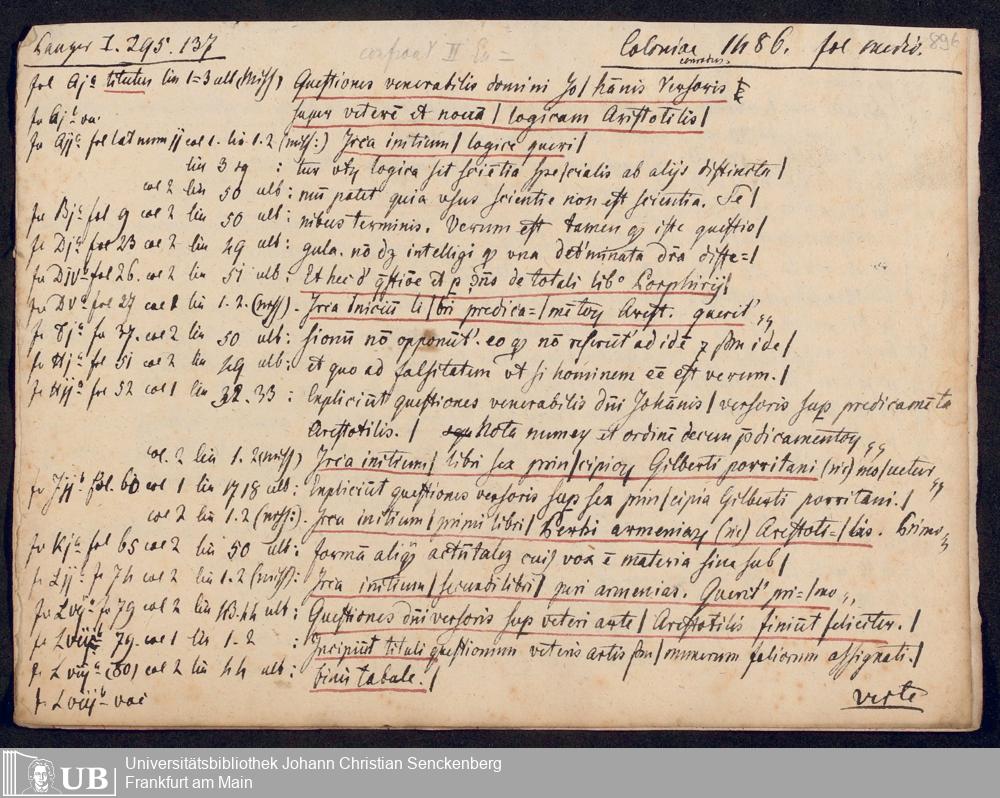 Panzer I. 295. 137 Coloniae 1486. fol medio. 896
fol Aj a titulus lin 1=3 alb (miss) Questiones venerabilis domini Jo/hānis Versoris
super veterē et nouā/logicam Aristotilis/
fo Aj b va:
fo Aij a fol lat num ij col 1. lin 1.2 (miss:) Irca initium/logice queri/
lin 3 sq : tur vtrū logica sit sciētia spe/cialis ab alijs distincta/
col 2 lin 50 alb : nū patet quia vsus scientie non est scientia. Te/
fo Bj a fol 9 col 2 lin 50 alb : nibus terminis. Verum est tamen qꝫ iste questio/
fo Dj a fol 23 col 2 lin 49 alb : gula. nō dꝫ intelligi qꝫ vna detẽminata dr̄a diffe=/
fo Div a fol 26. col 2 lin 51 alb : Et hec de q̄stiōe et p̱ de totali libo Porphirij
fo Dv a fol 27 col 1 lin 1.2. (miss). Irca Iniciū li/bri predica=/mētoꝝ Arist. querit'
fo Fj a fo 37. col 2 lin 50 alb : sionū nō opponūt'. eo qꝫ nō referūt' ad idē ⁊ ẜm ide/
fo Hj a fo 51 col 2 lin 49 alb : et quo ad falsitatem vt si hominem ēē est verum./
fo Hij a fo 52 col 1 lin 32.33 : Expliciūt questiones venerabilis dn̄i Johānis/versoris sup̱ predicamēta
Aristotilis./ Nota numeꝝ et ordinē decem p̄dicamentoꝝ
col. 2 lin 1.2 (miss) Ircia initium/libri sex prin/cipioꝝ Gilberti porritani (sic) mo/uetur
fo Jij b fol 60 col 1 lin 17 18 alb : Expliciūt questiones versoris sup̱ sex prin/cipia Gilberti porritani./
col 2 lin 1.2 (miss:). Irca initium/primi libri/Perhi armeniaꝝ (sic) Aristoti=/lis. Primo
fo Kj a fol 65 col 2 lin 50 alb : formā aliqꝫ actūtaleꝫ cui9 vox ē materia sine sub/
fo Lij a fo 74 col 2 lin 1.2 (miss): Irca initium/secundi libri/peri armenias. Querit' pri=/mo
fo Lvij a fo 79 col 2 lin 43.44 alb : Questiones dn̄i versoris sup̱ veteri arte/Aristotilis finiūt feliciter./
fo Lviij 79. col 1 lin 1-2 : Incipiūt tituli questionum veteris artis ẜm/numerum foliorum assignati./
fo Lviij a (80) col 2 lin 44 alb : finis tabule./
fo Lviij b vac
verte
UB Universitätsbibliothek Johann Christian Senckenberg
Frankfurt am Main